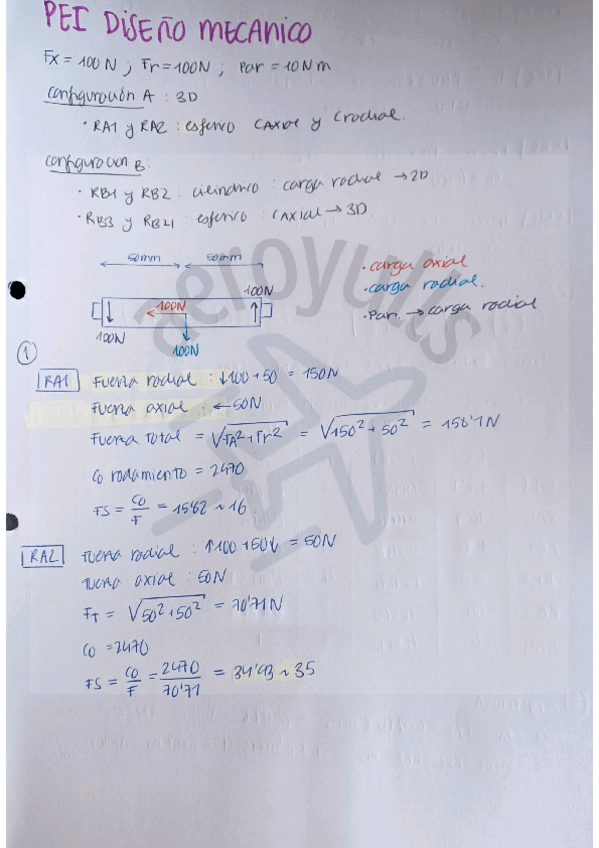 PEI DISEÑO MECANICO
Fx = 100 N ; Fr = 100N ; Par = 10 N m
Configuración A : 3D
· RA1 y RA2 : esferico CAxial y Cradial.
Configuración B:
· RB1 y RB2 : cilindrico : carga radial → 2D
· RB3 y RB4 : esferico : CAxial → 3D.
50mm 50mm
· carga axial
· carga radial.
· Par. → carga radial
100N
100N
100N
100N
aeroyuls
1
RA1 Fuerza radial : ↓100+50 = 150N
Fuerza axial : ← 50N
Fuerza Total = √FA²+Fr² = √150²+50² = 158'1N
Co rodamiento = 2470
FS = Co/F = 15'62 ~ 16
RA2 Fuerza radial : ↑100+50↓ = 50N
Fuerza axial : 50N
FT = √50²+50² = 70'71N
Co = 2470
FS = Co/F = 2470/70'71 = 34'93 ~ 35